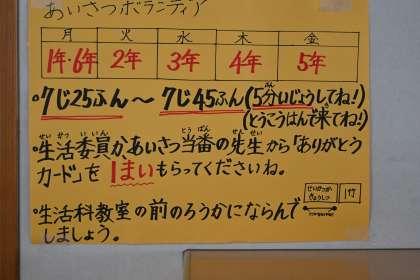 あいさつボランティア
月 火 水 木 金
1年・6年 2年 3年 4年 5年
・7じ25ふん〜 7じ45ふん(5分いじょうしてね!)
(とうこうはんで来てね!)
・生活委員かあいさつ当番の先生から「ありがとう
カード」を 1まいもらってくださいね。
・生活科教室の前のろうかにならんで
しましょう。
せいかつか
きょうしつ